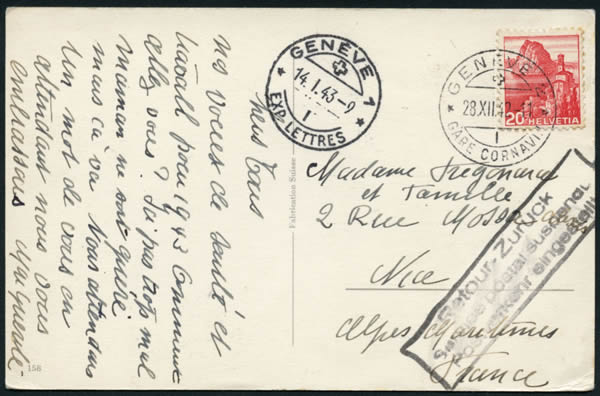 nos voeux de santé et
travail pour 1943 Comment
allez vous? Ici pas trop mal
maman ne sont guère
mais ça va Nous attendons
un mot de vous en
attendant nous vous
embrassons
Fabrication Suisse
158
GENÈVE 1
14.I.43-9
I
EXP. LETTRES
GENÈVE 2
28.XII.42
I
GARE CORNAVIN
20 HELVETIA
Madame
et Famille
2 Rue
Nice
Alpes Maritimes
France
Retour - Zurück
Service postal suspendu
Postverkehr eingestellt